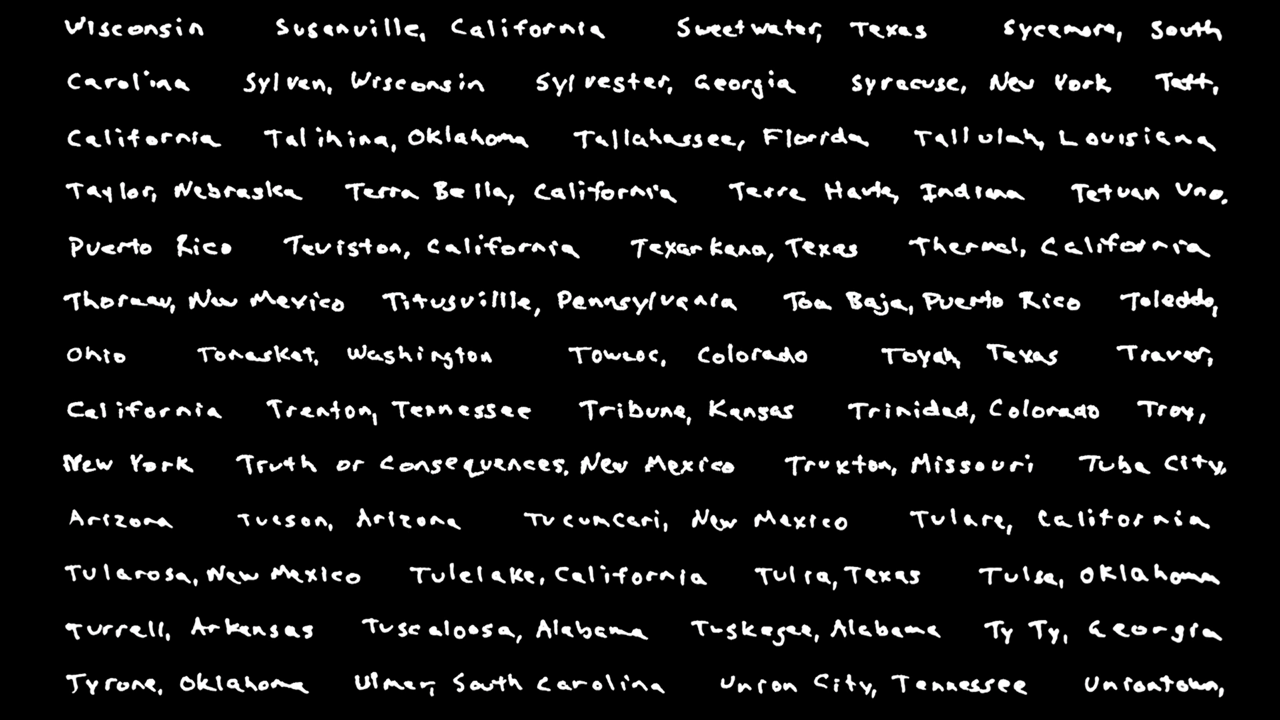 Wisconsin Susanville, California Sweetwater, Texas Sycamore, South
Carolina Sylvan, Wisconsin Sylvester, Georgia Syracuse, New York Taft,
California Talihina, Oklahoma Tallahassee, Florida Tallulah, Louisiana
Taylor, Nebraska Terra Bella, California Terre Haute, Indiana Tetuan Uno,
Puerto Rico Teviston, California Texarkana, Texas Thermal, California
Thoreau, New Mexico Titusvillle, Pennsylvania Toa Baja, Puerto Rico Toleddo,
Ohio Tonasket, Washington Towaoc, Colorado Toyah, Texas Traver,
California Trenton, Tennessee Tribune, Kansas Trinidad, Colorado Troy,
New York Truth or Consequences, New Mexico Truxton, Missouri Tuba City,
Arizona Tucson, Arizona Tucumcari, New Mexico Tulare, California
Tularosa, New Mexico Tulelake, California Tulia, Texas Tulsa, Oklahoma
Turrell, Arkansas Tuscaloosa, Alabama Tuskegee, Alabama Ty Ty, Georgia
Tyrone, Oklahoma Ulmer, South Carolina Union City, Tennessee Uniontown,